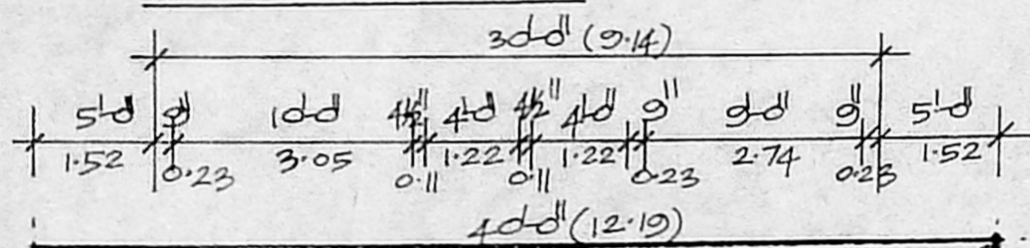 30'-0" (9.14)
5'-0" 9" 10'-0" 4½" 4'-0" 4½" 4'-0" 9" 9'-0" 9" 5'-0"
1.52 0.23 3.05 0.11 1.22 0.11 1.22 0.23 2.74 0.23 1.52
40'-0" (12.19)